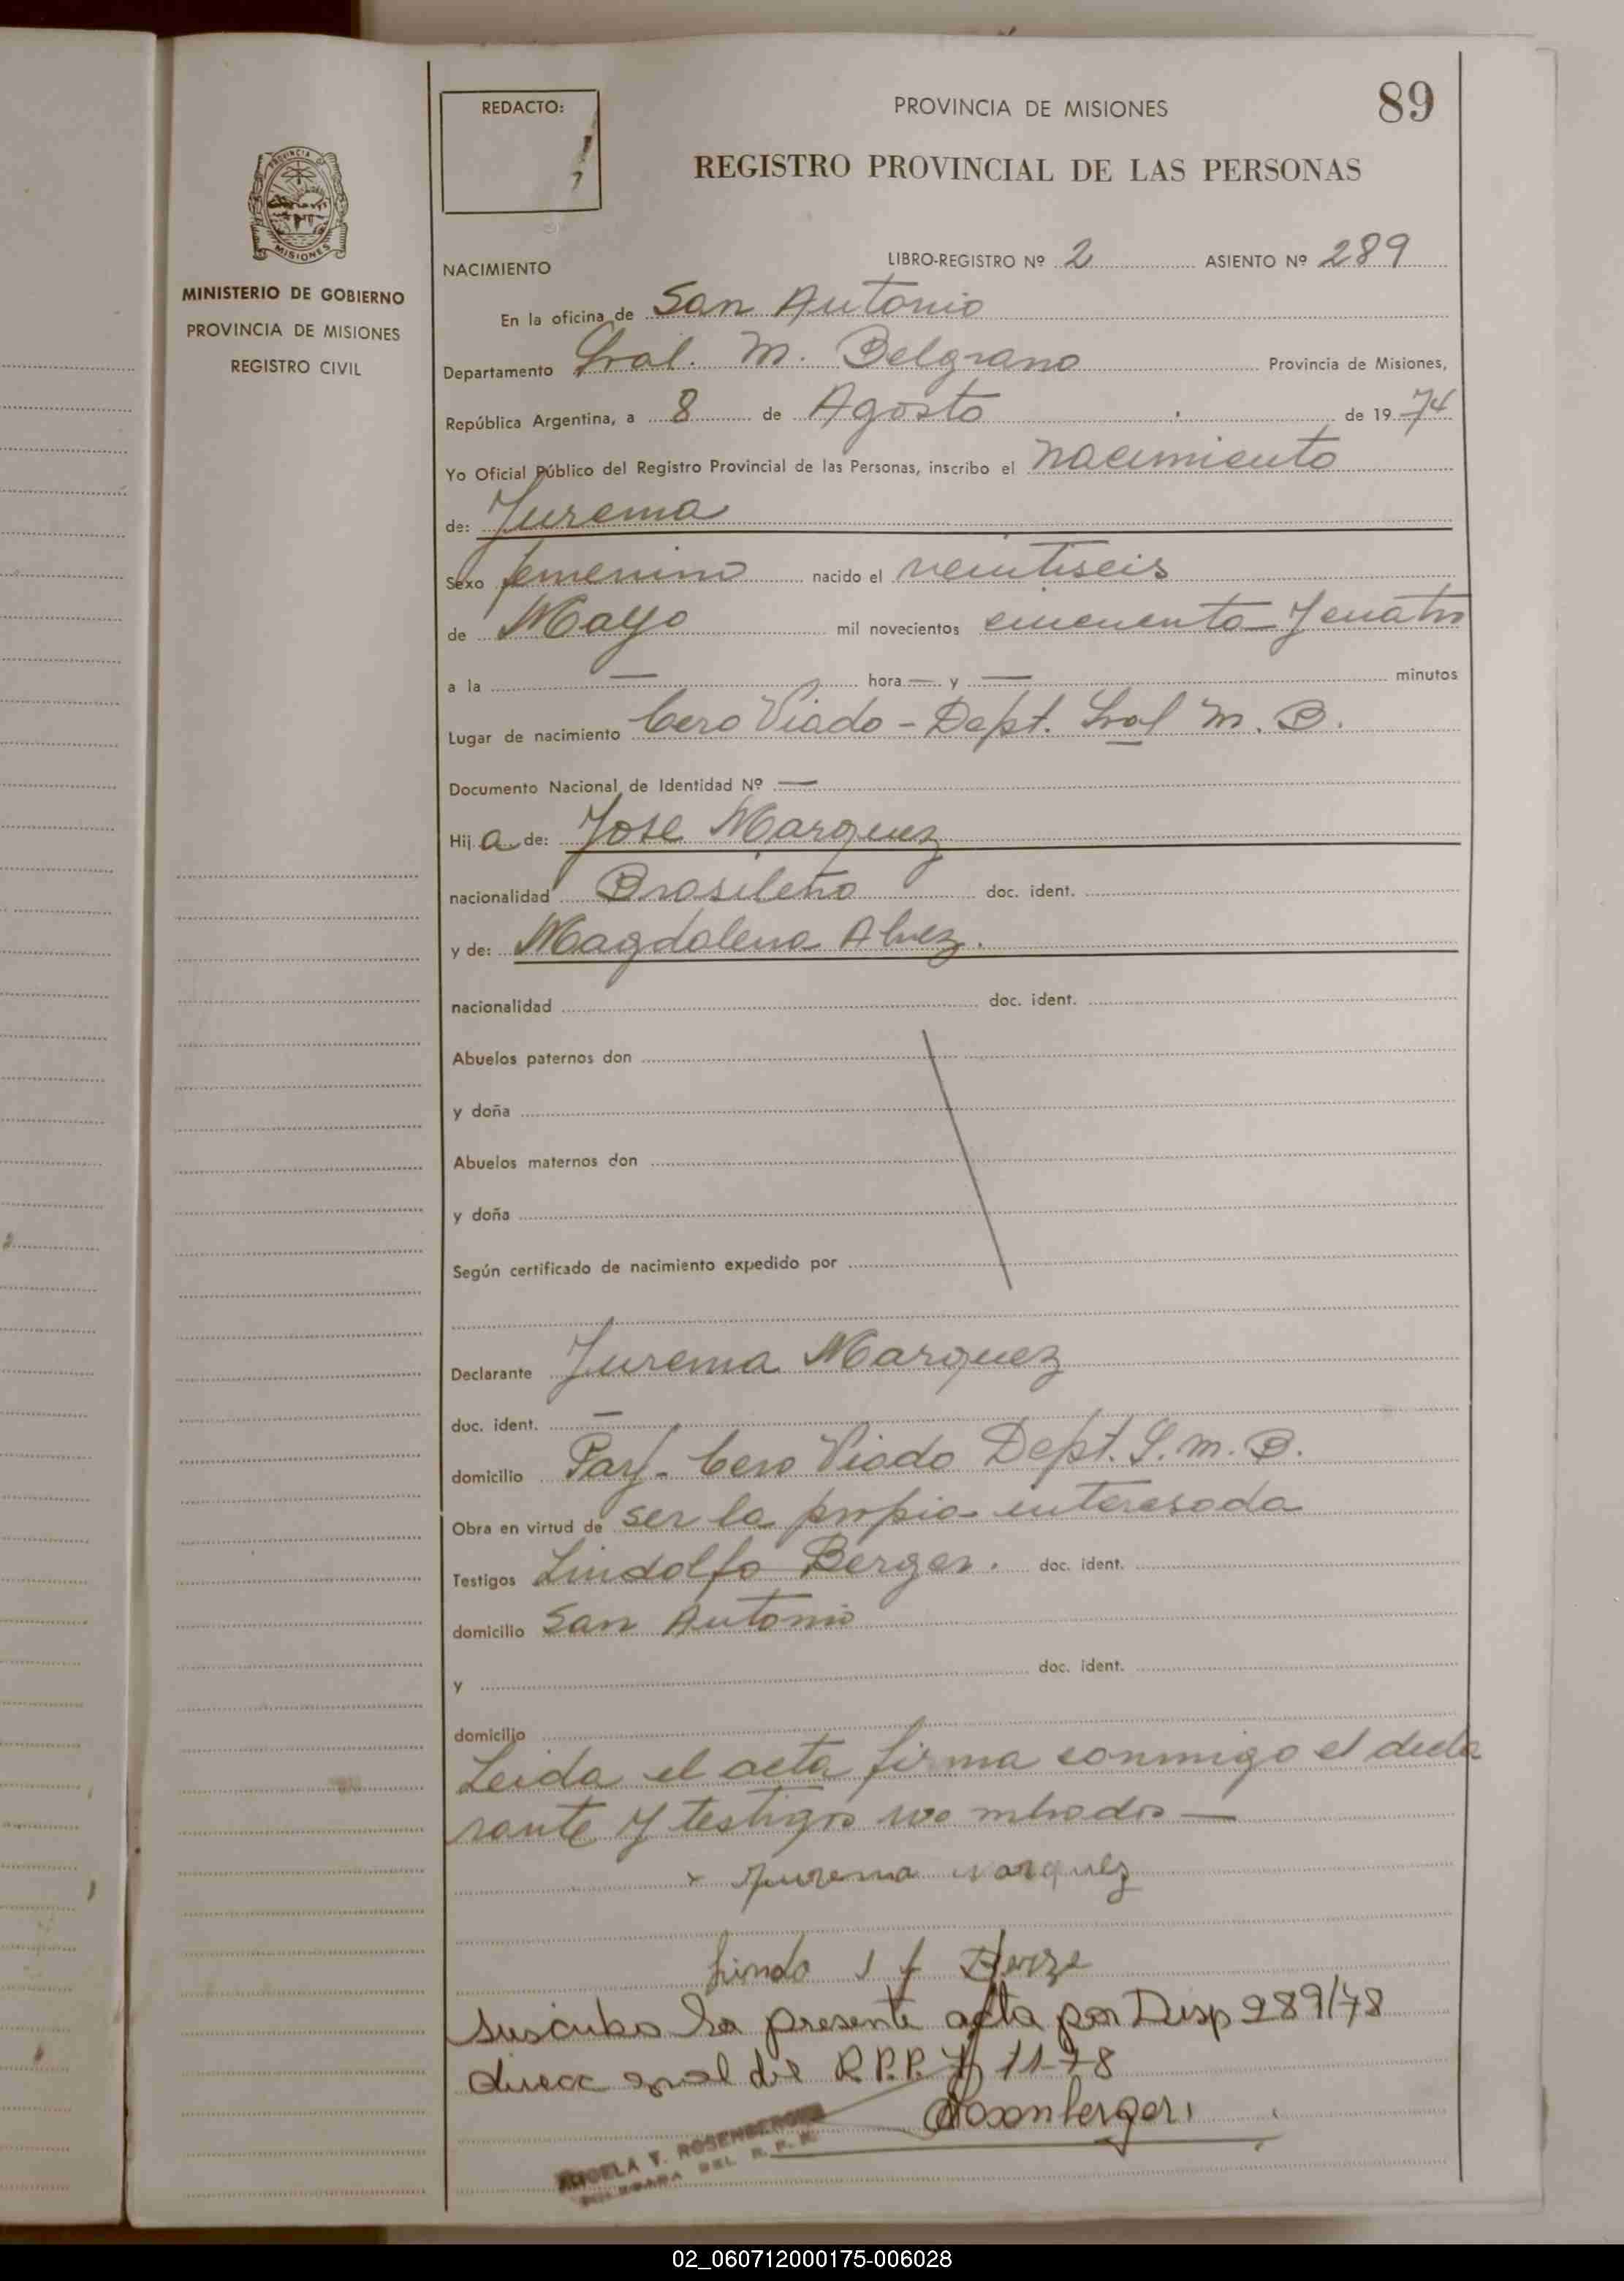 REDACTO:
PROVINCIA DE MISIONES
89
REGISTRO PROVINCIAL DE LAS PERSONAS
PROVINCIA
MISIONES
MINISTERIO DE GOBIERNO
PROVINCIA DE MISIONES
REGISTRO CIVIL
NACIMIENTO
LIBRO-REGISTRO Nº 2 ASIENTO Nº 289
En la oficina de San Antonio
Departamento Gral. M. Belgrano Provincia de Misiones,
República Argentina, a 8 de Agosto de 1974
Yo Oficial Público del Registro Provincial de las Personas, inscribo el nacimiento
de: Jurema
Sexo femenino nacido el veintiseis
de Mayo mil novecientos cincuenta y cuatro
a la — hora — y — minutos
Lugar de nacimiento Cero Viado - Dept. Gral M. B.
Documento Nacional de Identidad Nº —
Hija de: Jose Marquez
nacionalidad Brasileño doc. ident.
y de: Magdalena Alvez.
nacionalidad doc. ident.
Abuelos paternos don
y doña
Abuelos maternos don
y doña
Según certificado de nacimiento expedido por
Declarante Jurema Marquez
doc. ident. —
domicilio Cero Viado Dept. G. M. B.
Obra en virtud de ser la propia interesada
Testigos Lindolfo Berger. doc. ident.
domicilio San Antonio
y doc. ident.
domicilio
Leida el acta firma conmigo el decla
rante y testigos nombrados —
x Jurema Marquez
suscribo la presente acta por Disp 289/78
direcc gral del R.P.P. 11-78
Rosenberger
T. ROSENBERGER
DEL R. P. P.
02_060712000175-006028